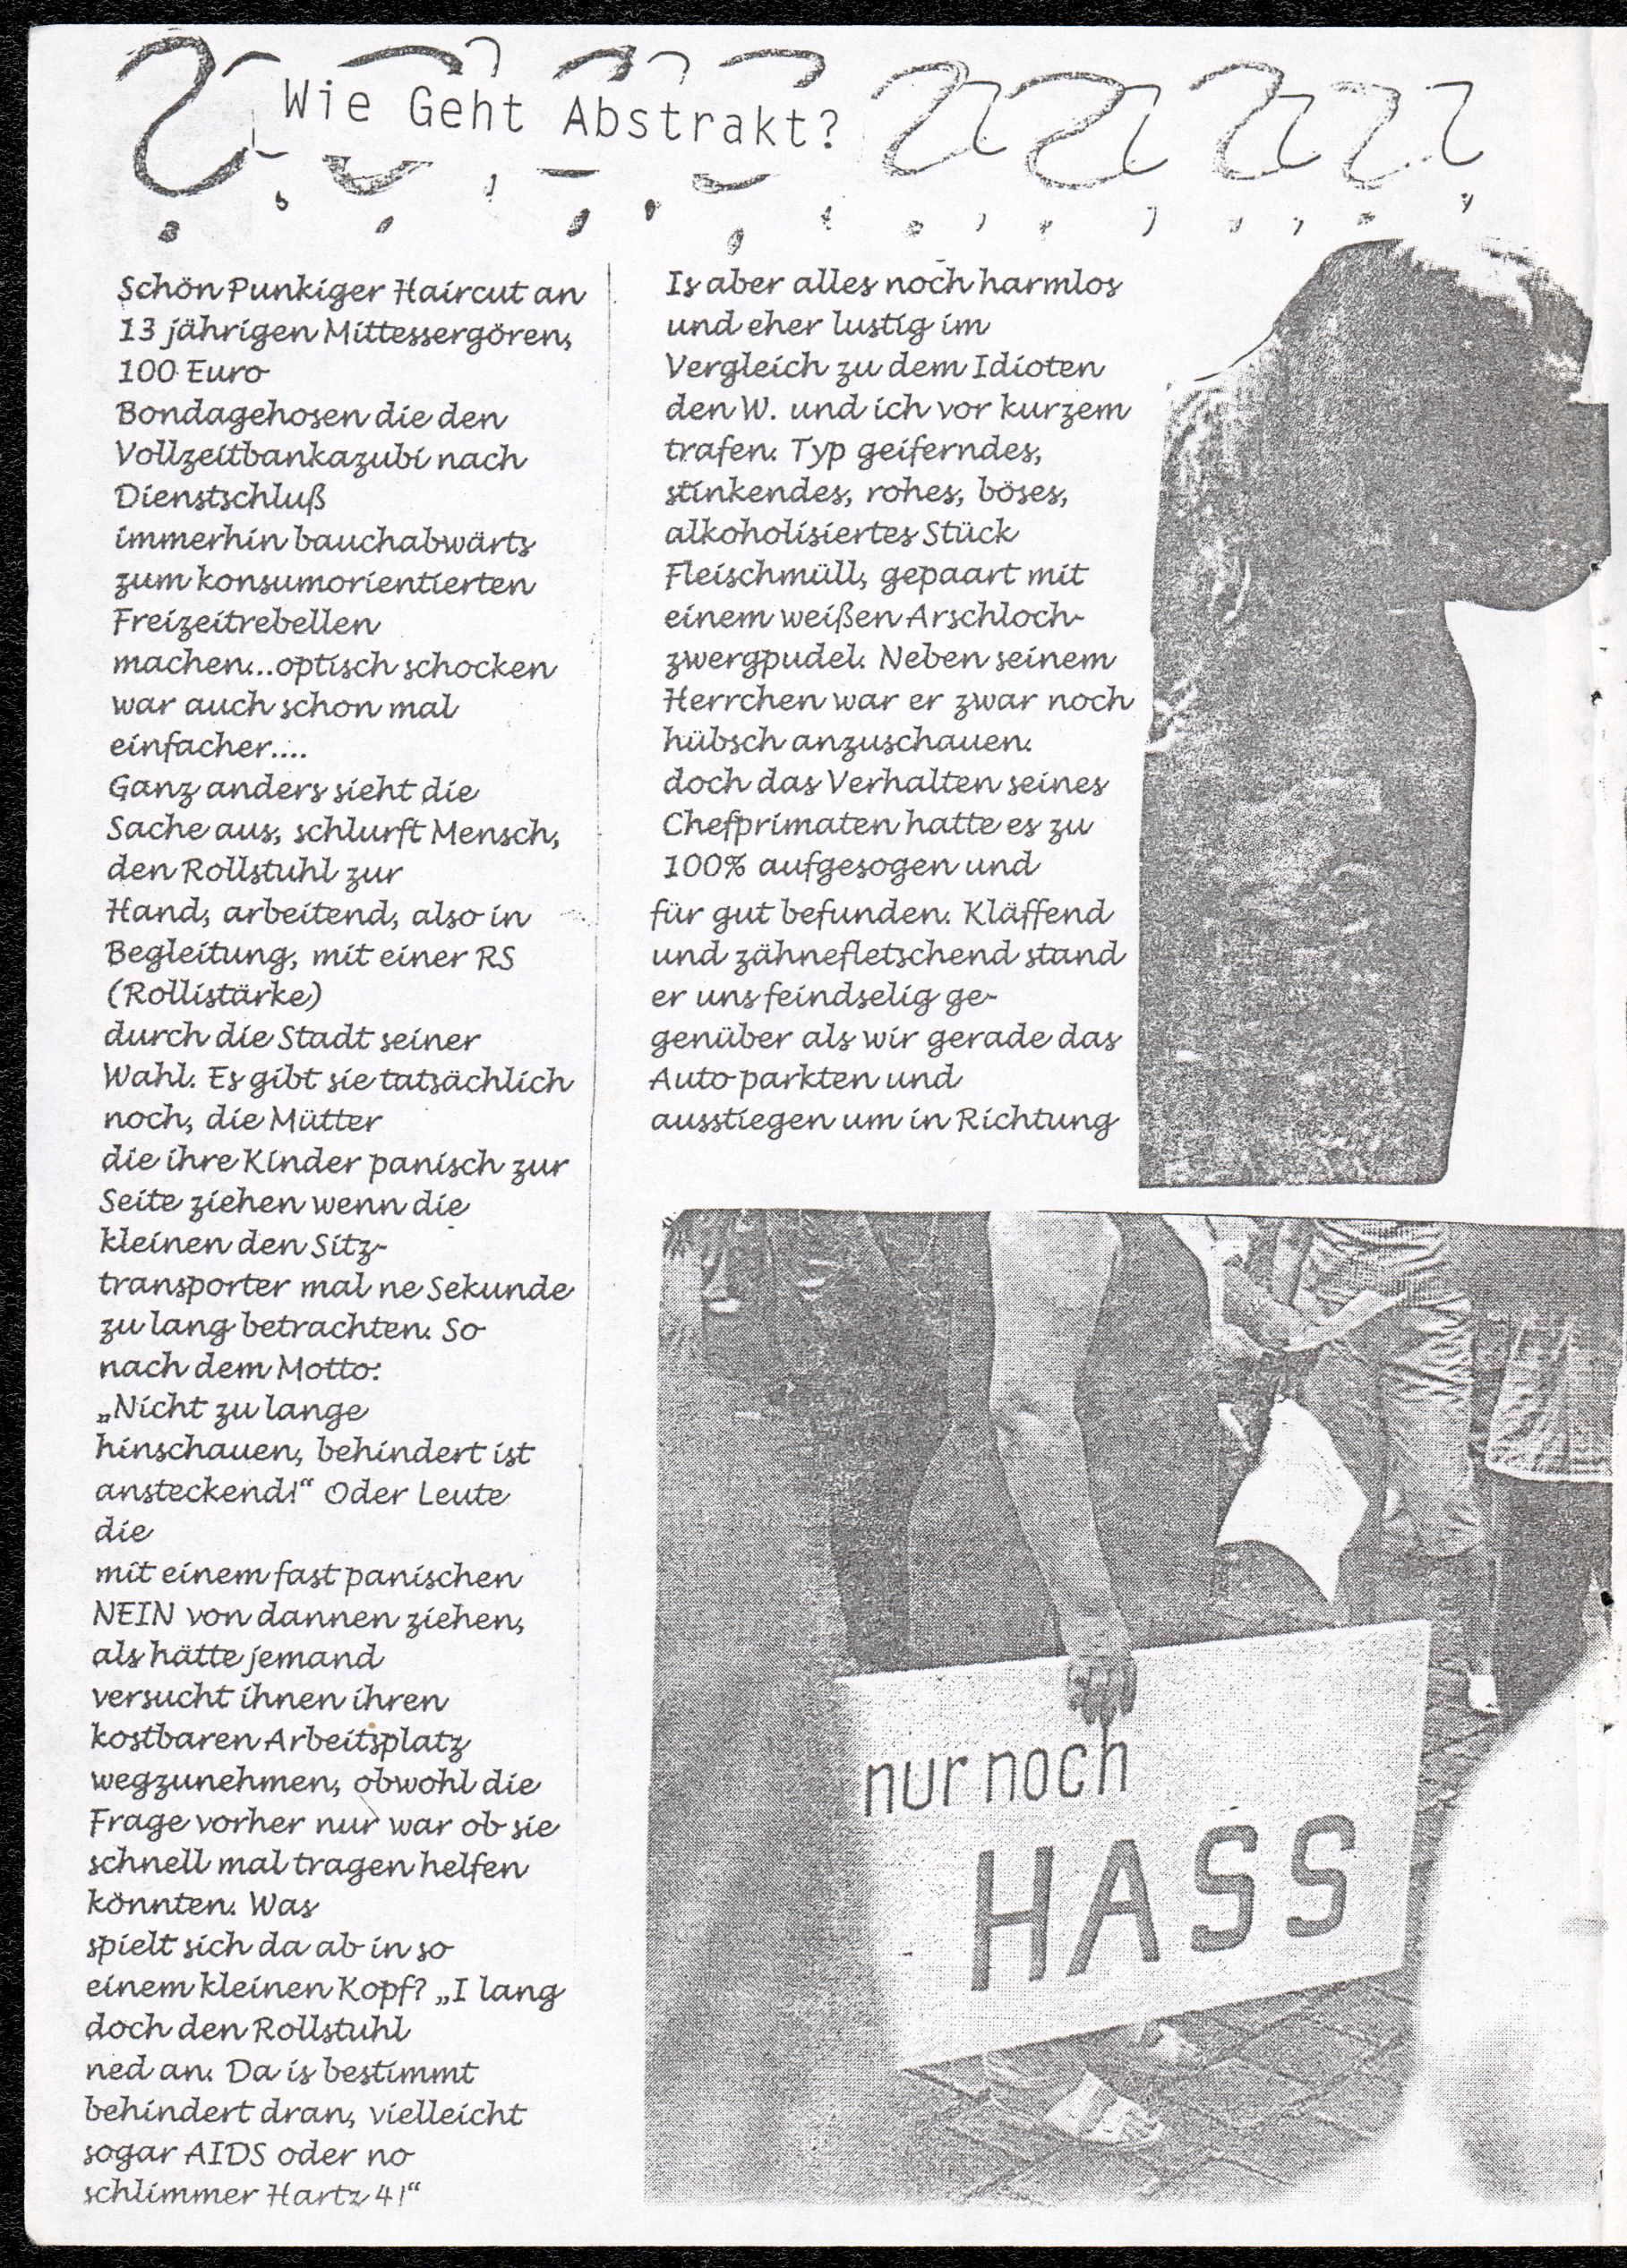 Wie Geht Abstrakt?
Schön Punkiger Haircut an
13 jährigen Mittessergören,
100 Euro
Bondagehosen die den
Vollzeitbankazubi nach
Dienstschluß
immerhin bauchabwärts
zum konsumorientierten
Freizeitrebellen
machen...optisch schocken
war auch schon mal
einfacher....
Ganz anders sieht die
Sache aus, schlurft Mensch,
den Rollstuhl zur
Hand, arbeitend, also in
Begleitung, mit einer RS
(Rollistärke)
durch die Stadt seiner
Wahl. Es gibt sie tatsächlich
noch, die Mütter
die ihre Kinder panisch zur
Seite ziehen wenn die
kleinen den Sitz-
transporter mal ne Sekunde
zu lang betrachten. So
nach dem Motto:
„Nicht zu lange
hinschauen, behindert ist
ansteckend!“ Oder Leute
die
mit einem fast panischen
NEIN von dannen ziehen,
als hätte jemand
versucht ihnen ihren
kostbaren Arbeitsplatz
wegzunehmen, obwohl die
Frage vorher nur war ob sie
schnell mal tragen helfen
könnten. Was
spielt sich da ab in so
einem kleinen Kopf? „I lang
doch den Rollstuhl
ned an. Da is bestimmt
behindert dran, vielleicht
sogar AIDS oder no
schlimmer Hartz 4!“
Is aber alles noch harmlos
und eher lustig im
Vergleich zu dem Idioten
den W. und ich vor kurzem
trafen. Typ geiferndes,
stinkendes, rohes, böses,
alkoholisiertes Stück
Fleischmüll, gepaart mit
einem weißen Arschloch-
zwergpudel. Neben seinem
Herrchen war er zwar noch
hübsch anzuschauen.
doch das Verhalten seines
Chefprimaten hatte es zu
100% aufgesogen und
für gut befunden. Kläffend
und zähnefletschend stand
er uns feindselig ge-
genüber als wir gerade das
Auto parkten und
ausstiegen um in Richtung
nur noch
HASS